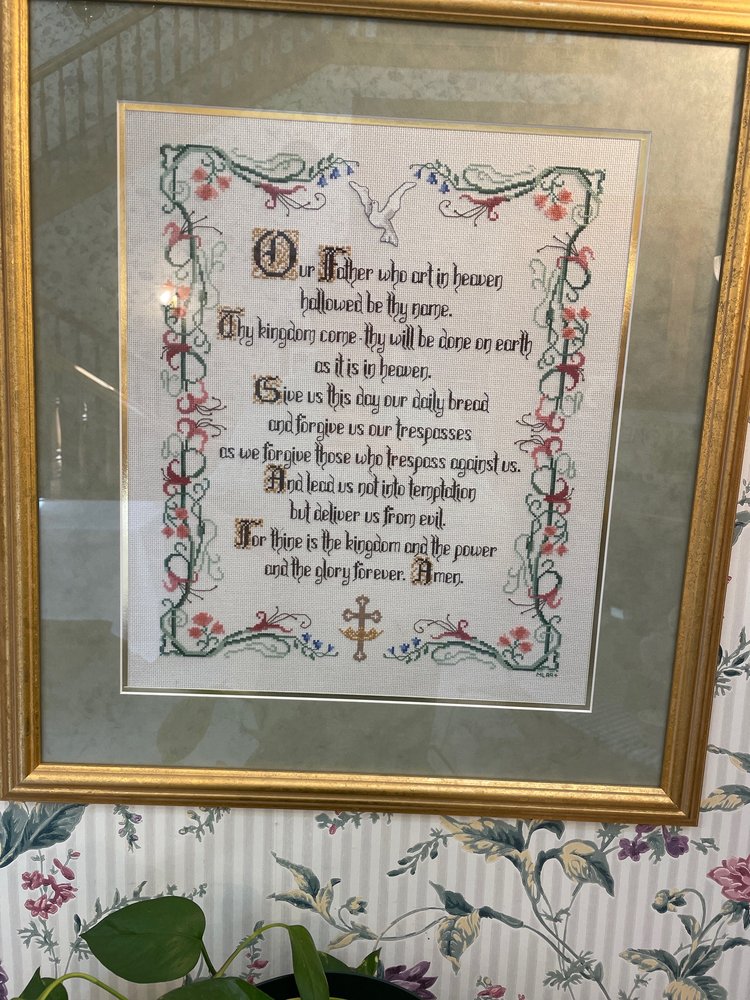 Our Father who art in heaven
hallowed be thy name.
Thy kingdom come · thy will be done on earth
as it is in heaven.
Give us this day our daily bread
and forgive us our trespasses
as we forgive those who trespass against us.
And lead us not into temptation
but deliver us from evil.
For thine is the kingdom and the power
and the glory forever. Amen.